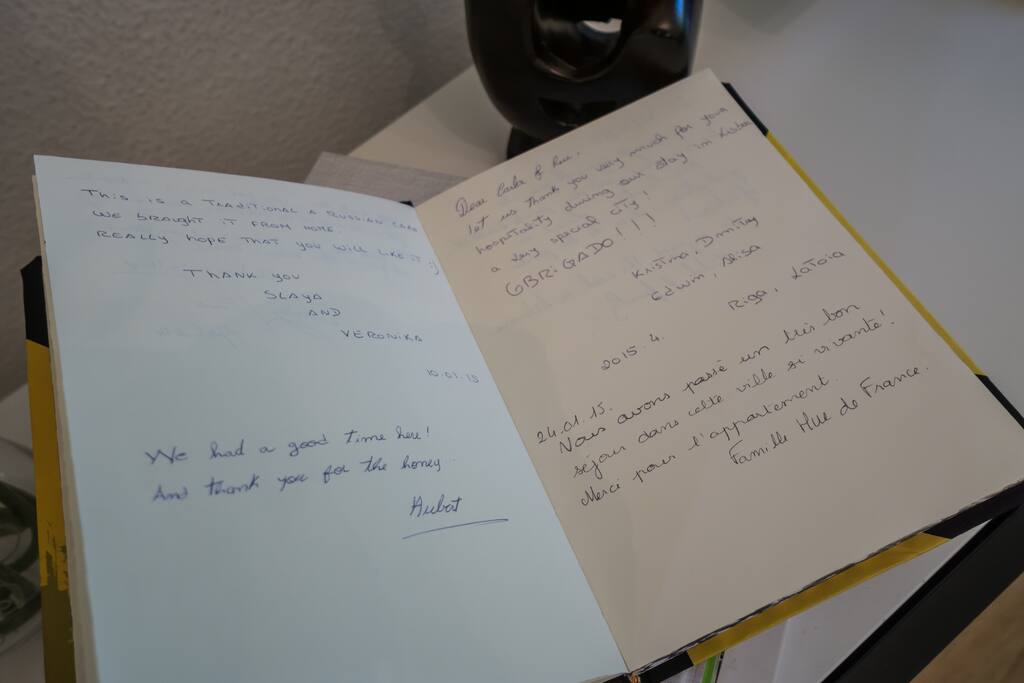 This is a traditional a Russian card
we braught it from home.
Really hope that you will like it :)
Thank you
Slaya
and
Veronika
10.01.15
We had a good time here!
And thank you for the honey
Hubot
Dear
let us thank you very much for your
hospitality during our stay in Lisbon
a very special city!
OBRIGADO!!!
Kristina, Dmitry
Edwin, Alisa
Riga, Latvia
2015. 4.
24.01.15.
Nous avons passé un très bon
séjour dans cette ville si vivante!
Merci pour l'appartement.
Famille Hue de France.